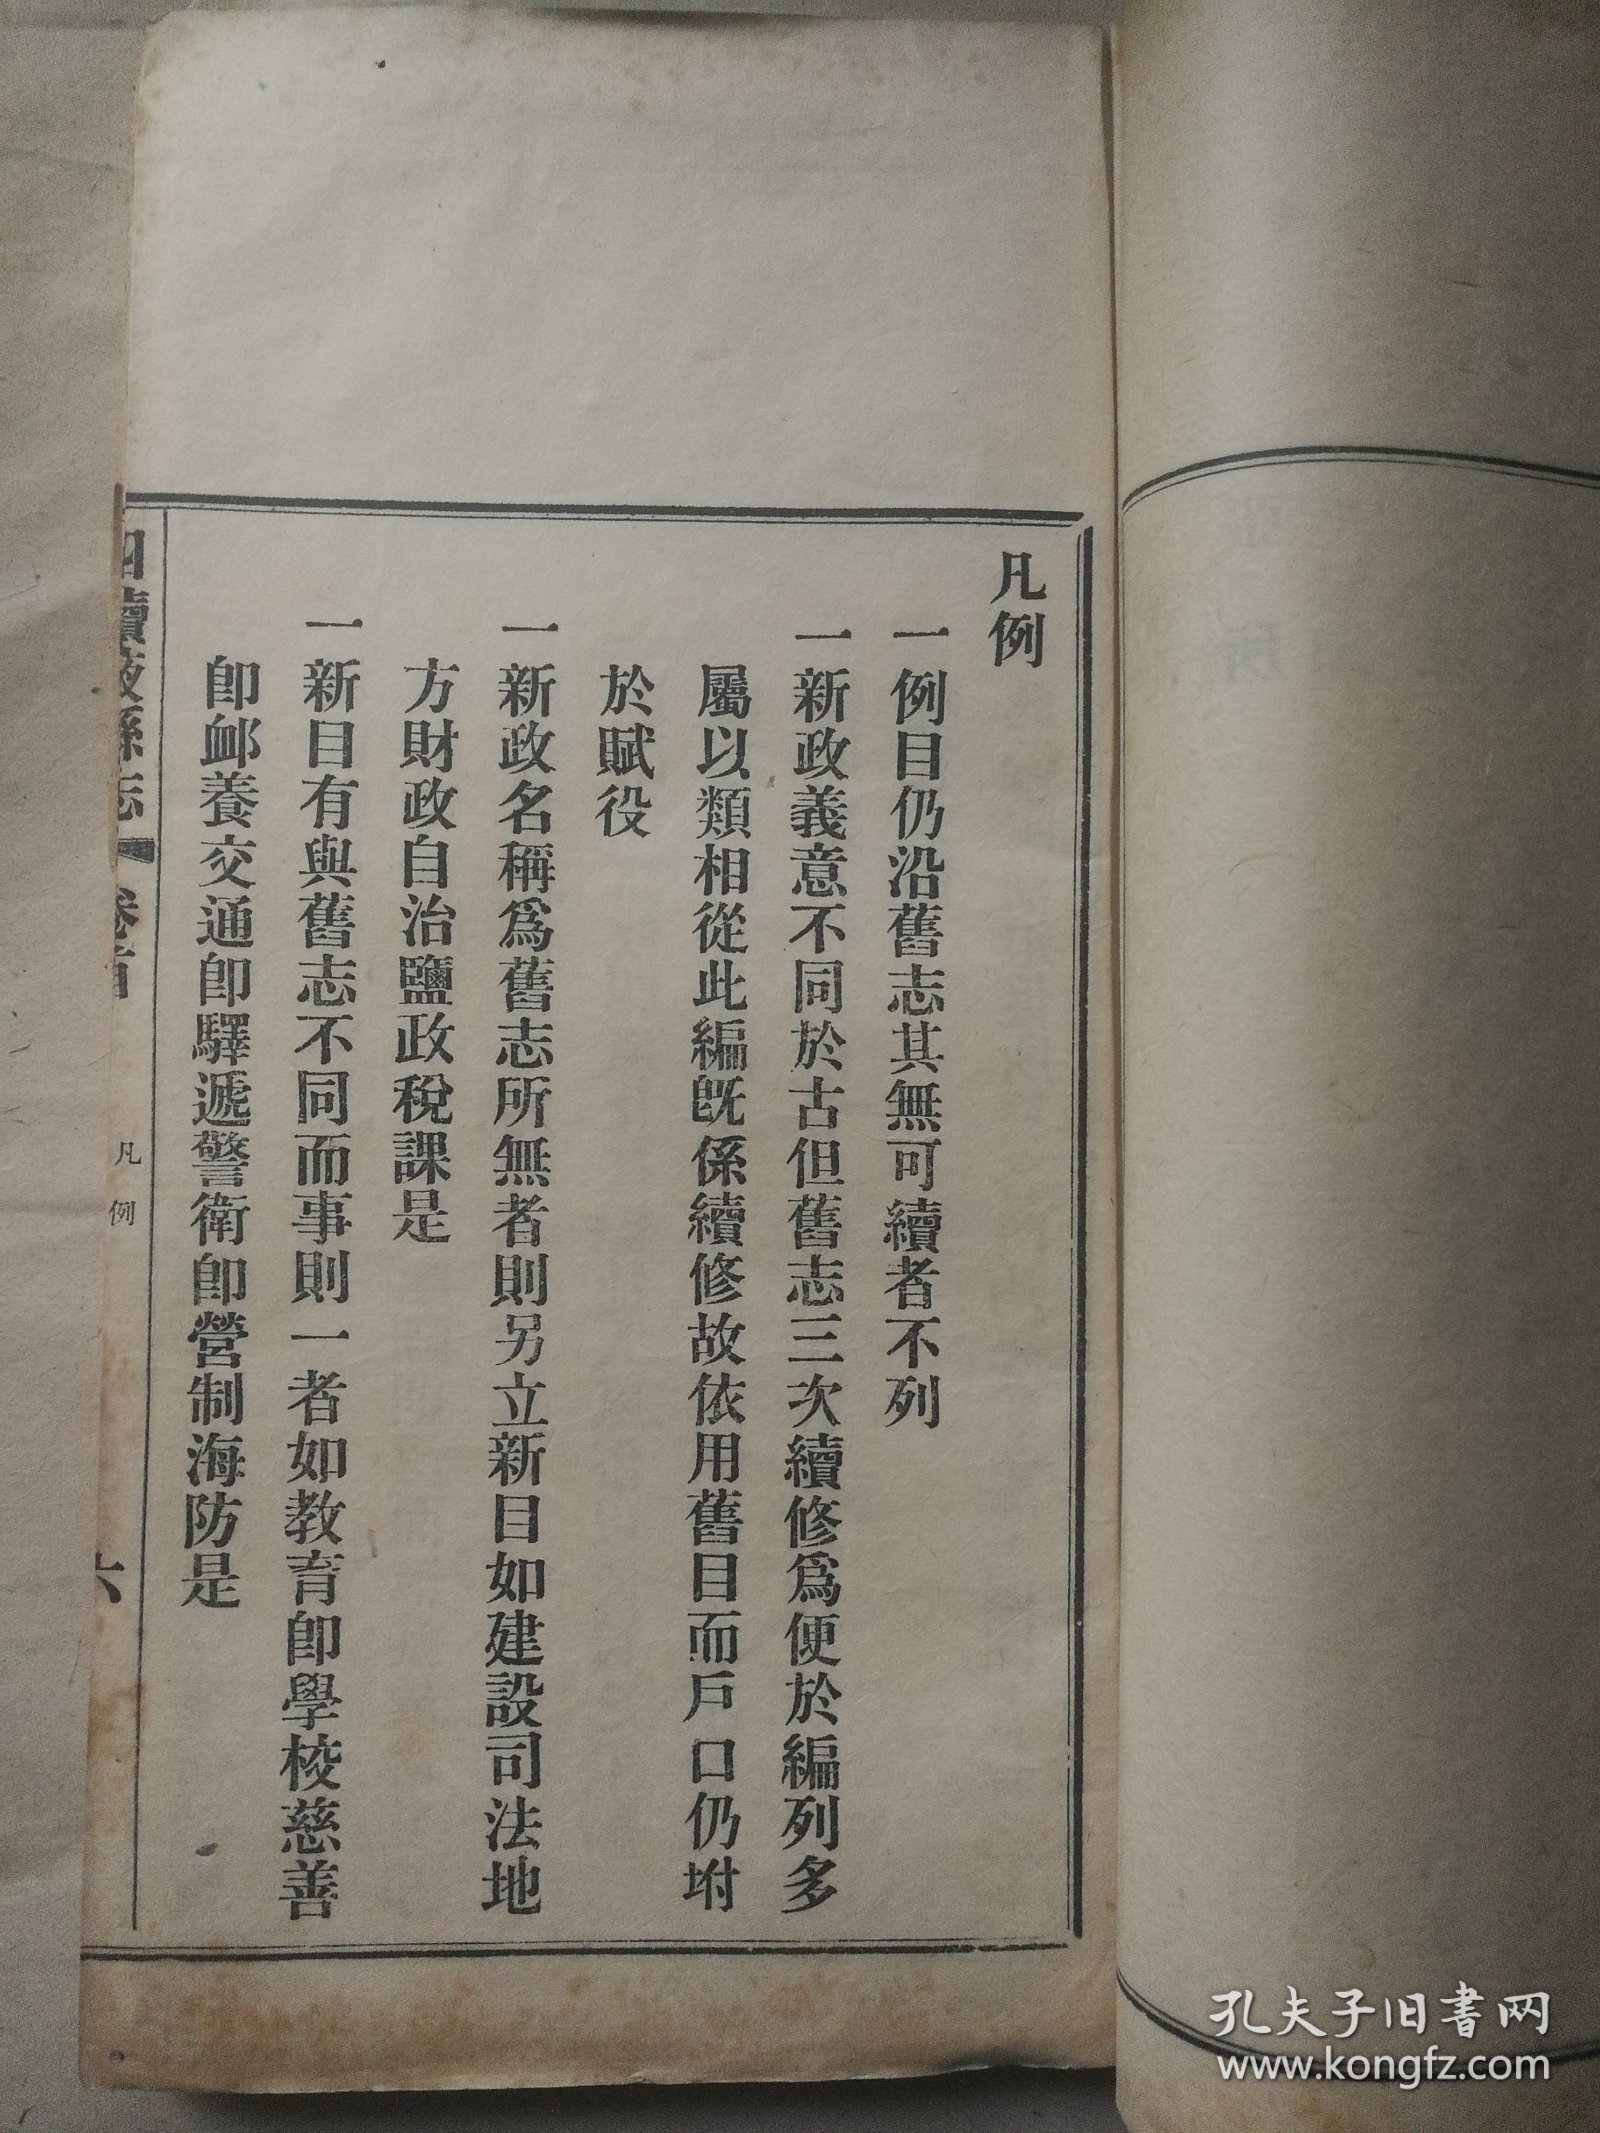 凡例
一例目仍沿舊志其無可續者不列
一新政義意不同於古但舊志三次續修爲便於編列多
屬以類相從此編旣係續修故依用舊目而戶口仍坿
於賦役
一新政名稱爲舊志所無者則另立新目如建設司法地
方財政自治鹽政稅課是
一新目有與舊志不同而事則一者如教育卽學校慈善
卽卹養交通卽驛遞警衛卽營制海防是
四續掖縣志 卷首 凡例 六
孔夫子旧书网
www.kongfz.com